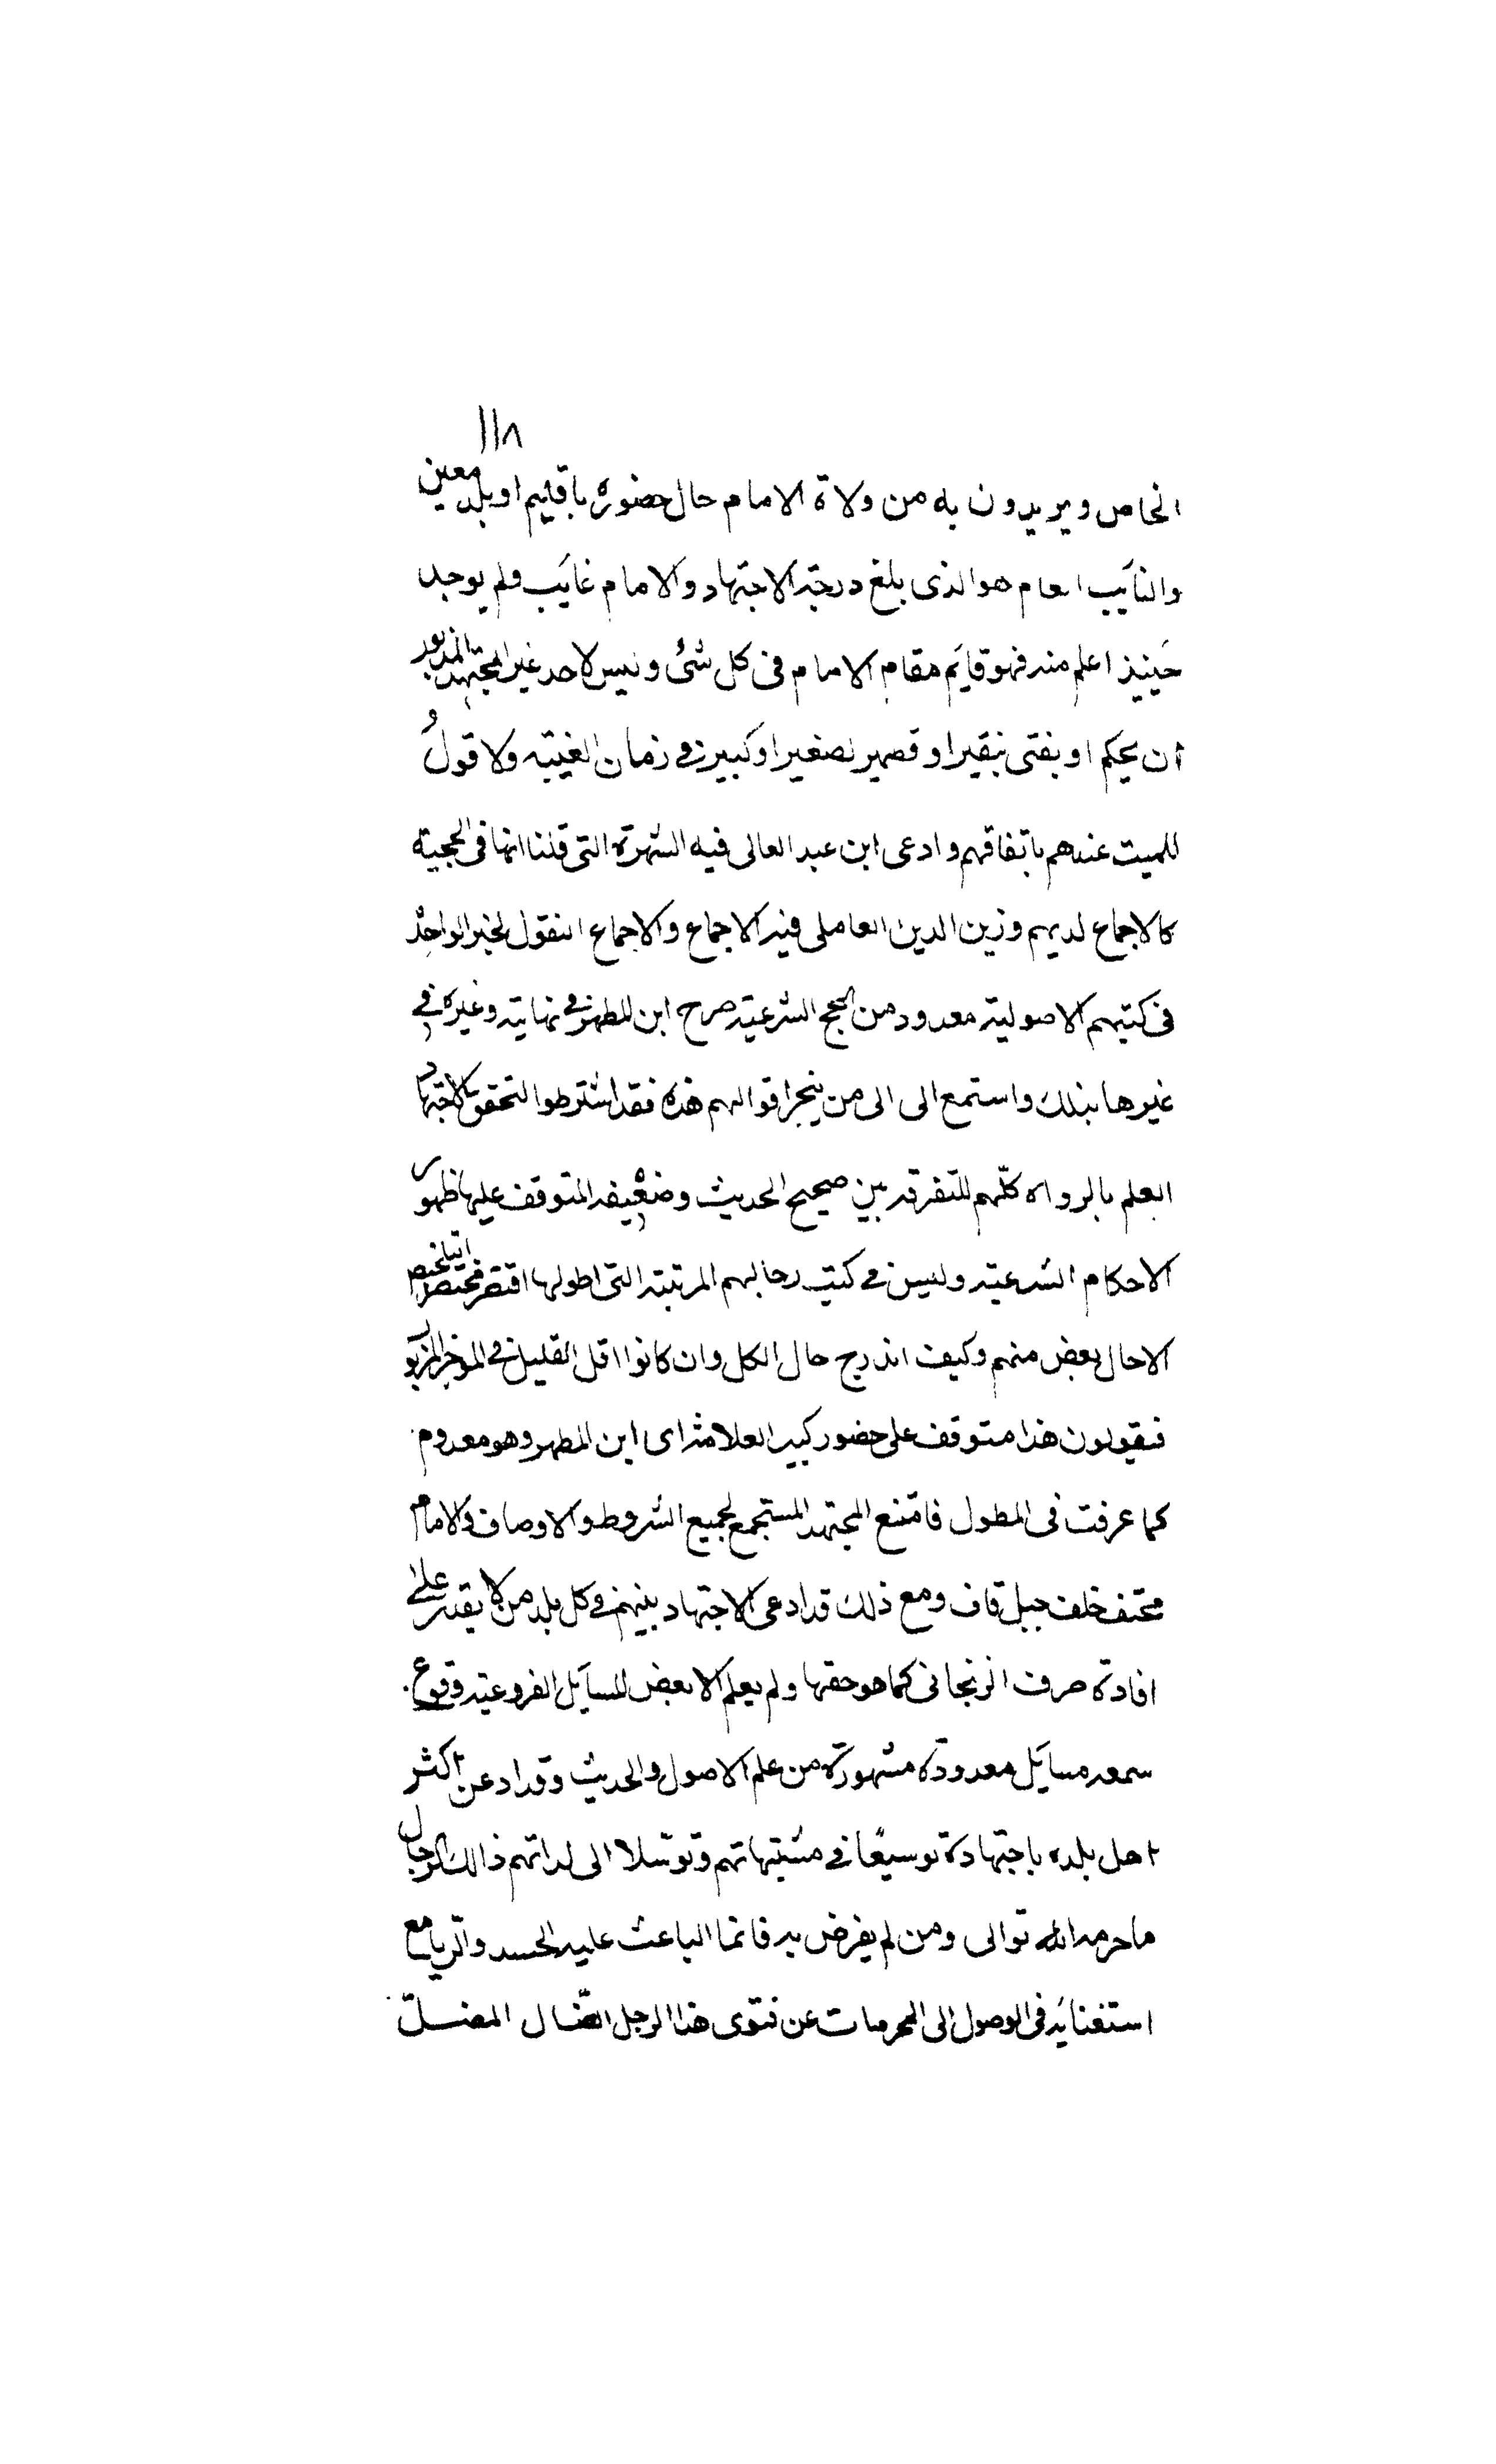 ١١٨
الخاص ويريدون به من ولاة الامام حال حضوره باقليم او بلد معين
والنائب العام هو الذى بلغ درجة الاجتهاد والامام غائب ولم يوجد
حينيذ اعلم منه فهو قايم مقام الامام فى كل شئ وليس لاحد غير المجتهد المذبور
ان يحكم او يفتى بنقير او قصمير لصغير او كبير في زمان الغيبة ولا قول
للميت عندهم باتفاقهم وادعى ابن عبد العالى فيه الشهرة التى قلنا انها فى الحجية
كالاجماع لديهم وزين الدين العاملى فيه الاجماع والاجماع النقول لخبر الواحد
فى كتبهم الاصولية معدود من الحجج الشرعية صرح ابن المطهر في نهايته وغيره في
غيرها بذلك واستمع الى الى من ينجر اقوالهم هذه فقد اشترطوا لتحقق الاجتهاد
العلم بالرواه كلّهم للتفرقه بين صحيح الحديث وضعيفه المتوقف عليها ظهور
الاحكام الشرعية وليس في كتب رجالهم المرتبة التى اطولها اقتصر مختصر التلخيص
الا حال بعض منهم وكيف اندرج حال الكل وان كانوا اقل القليل في الموخر المزبور
فيقولون هذا متوقف على حضور كبير العلامة اى ابن المطهر وهو معدوم
كما عرفت فى المطول فامتنع المجتهد المستجمع لجميع الشروط والاوصاف والامام
مختف خلف جبل قاف ومع ذلك قد ادعى الاجتهاد بينهم في كل بلد من لا يقدر على
افادة صرف الزنجانى كما هو حقها ولم يعلم الا بعض المسايل الفروعية وقوع
سمعه مسايل معدودة مشهورة من علم الاصول والحديث وقد ادعن اكثر
اهل بلده باجتهاده توسيعًا في مشتبهاتهم وتوسّلا الى لداتهم ذالك الرجال
ما حرمه الله توالى ومن لم يفرض به فانما الباعث عليه الحسد والريا مع
استغنايه فى الوصول الى المحرمات عن فتوى هذا الرجل الضّال المضلّ